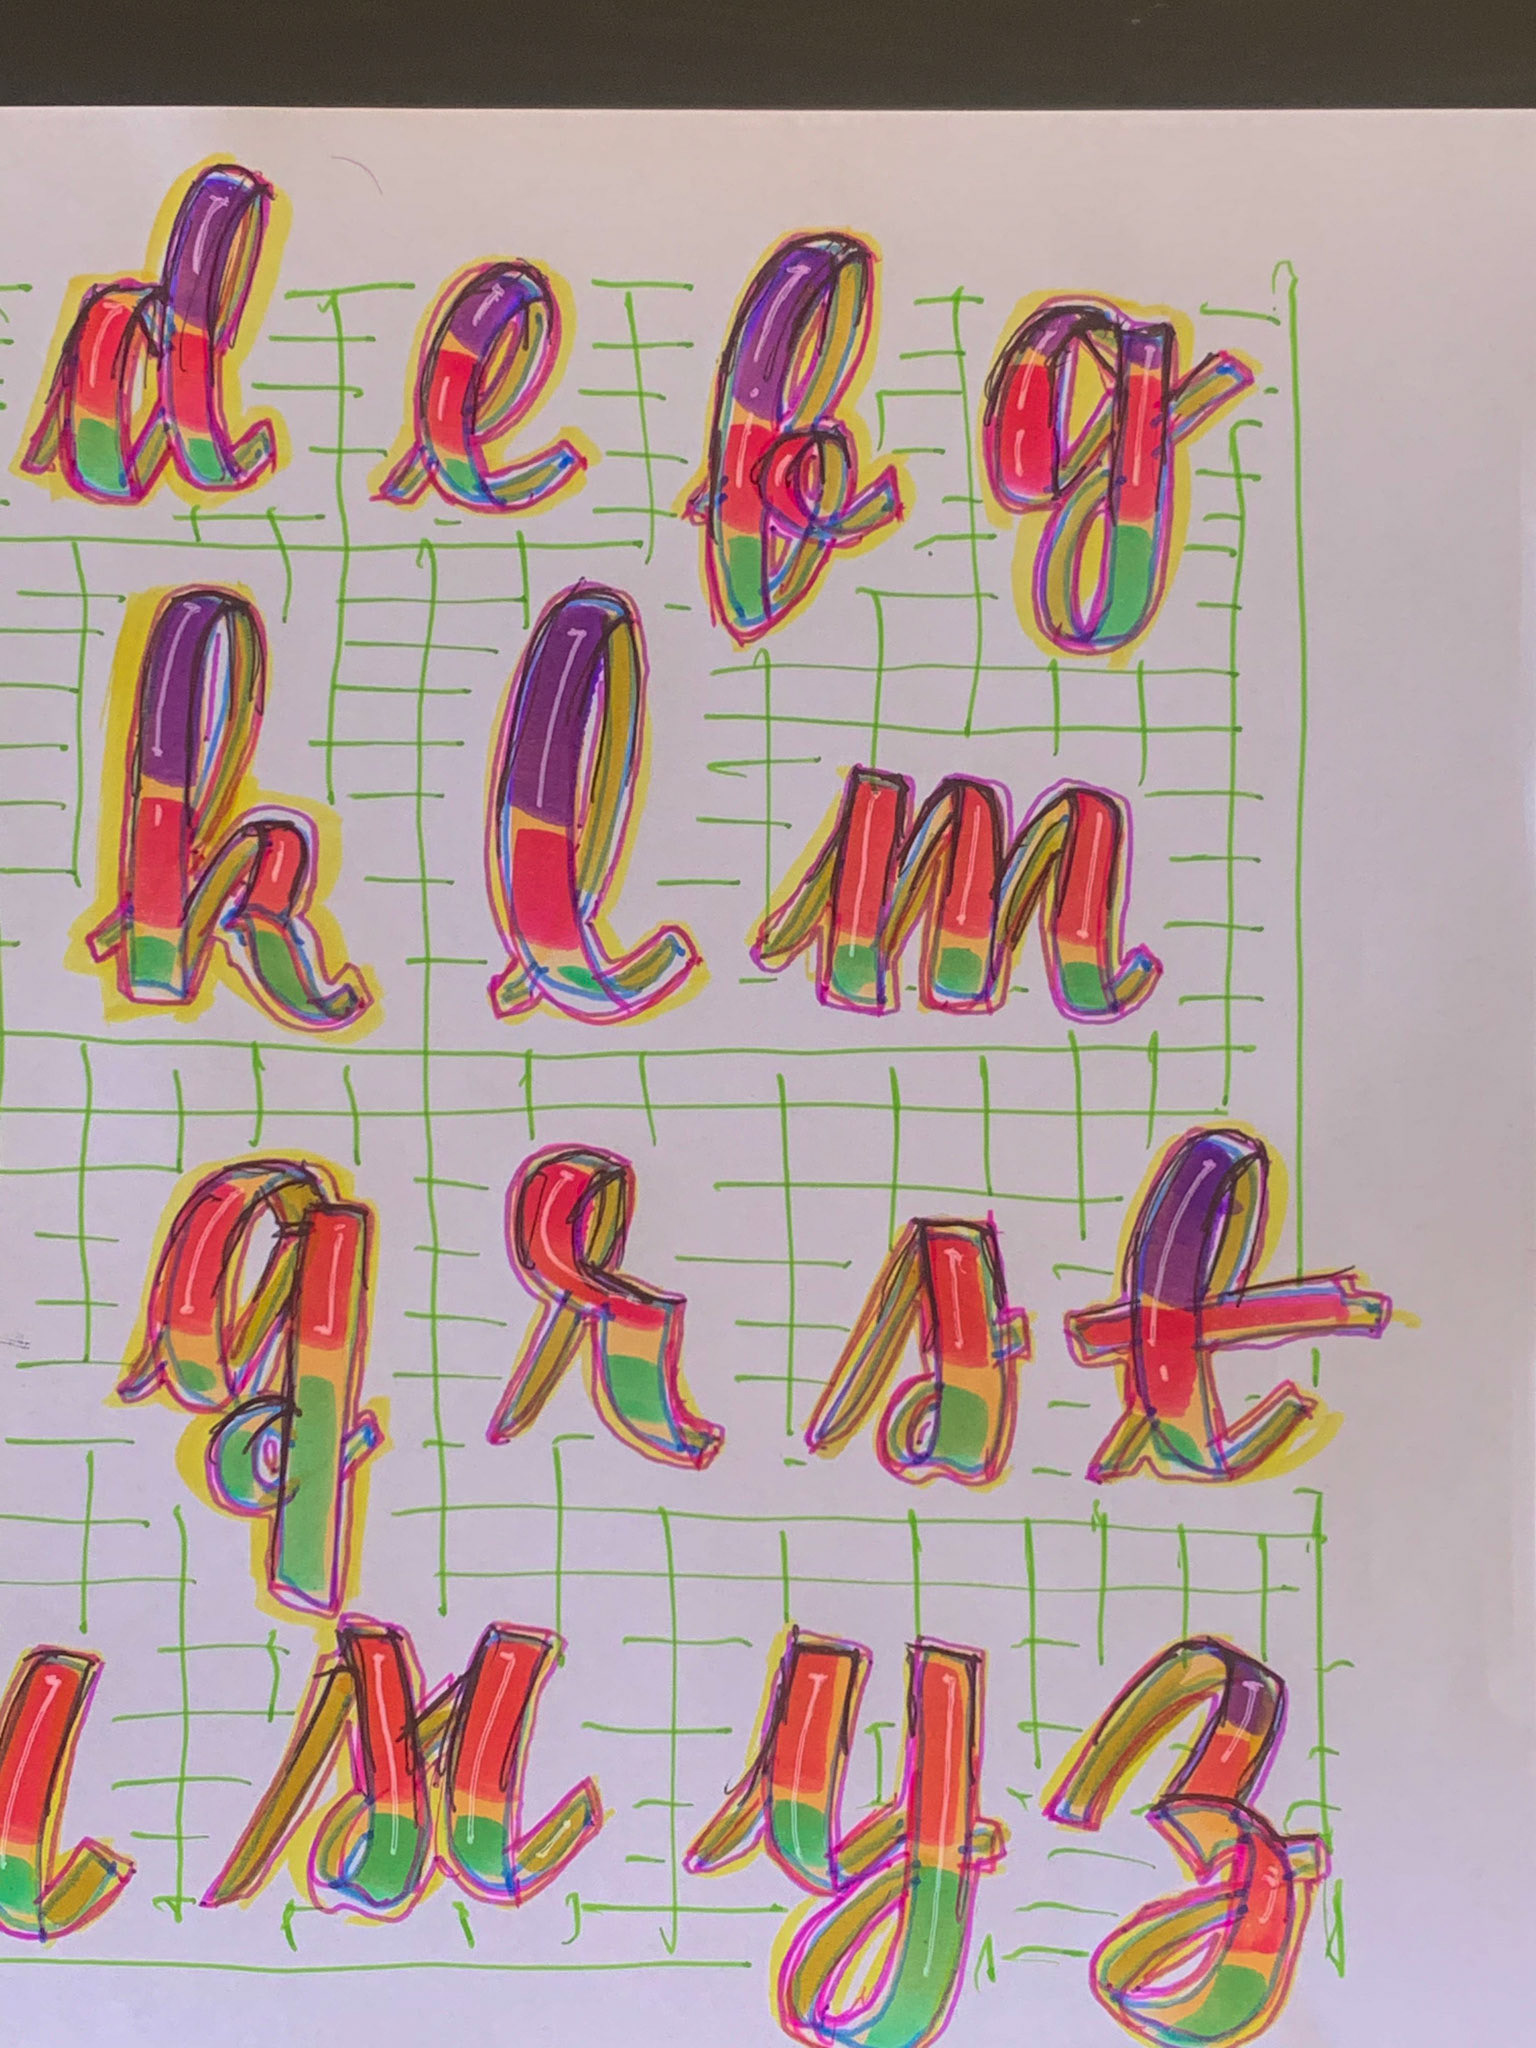 d e f g
k l m
q r s t
x y z